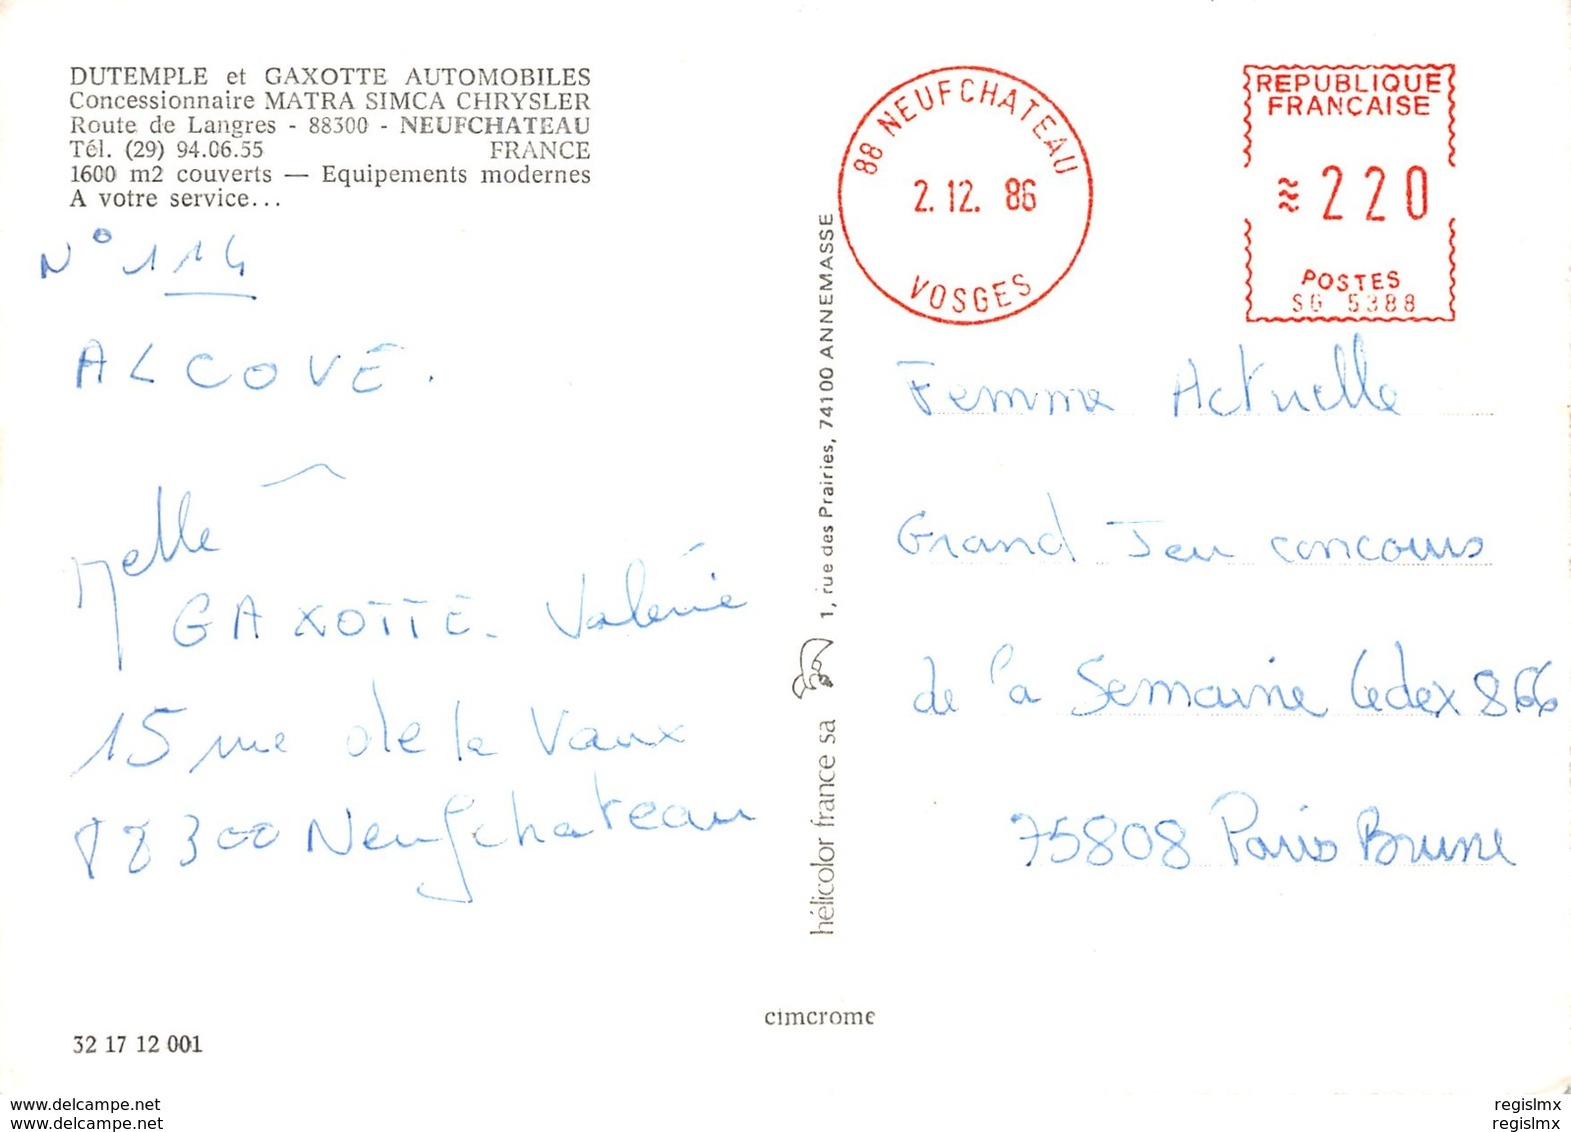 DUTEMPLE et GAXOTTE AUTOMOBILES
Concessionnaire MATRA SIMCA CHRYSLER
Route de Langres - 88300 - NEUFCHATEAU
Tél. (29) 94.06.55 FRANCE
1600 m2 couverts — Equipements modernes
A votre service...
N° 114
ALCOVE.
Melle
GAXOTTE. Valérie
15 rue de la Vaux
88300 Neufchateau
32 17 12 001
cimcrome
hélicolor france sa 1, rue des Prairies, 74100 ANNEMASSE
88 NEUFCHATEAU
2.12.86
VOSGES
REPUBLIQUE
FRANÇAISE
220
POSTES
SG 5388
Femme Actuelle
Grand Jeu concours
de la Semaine Cedex 866
75808 Paris Brune
www.delcampe.net
www.delcampe.net
regislmx
regislmx